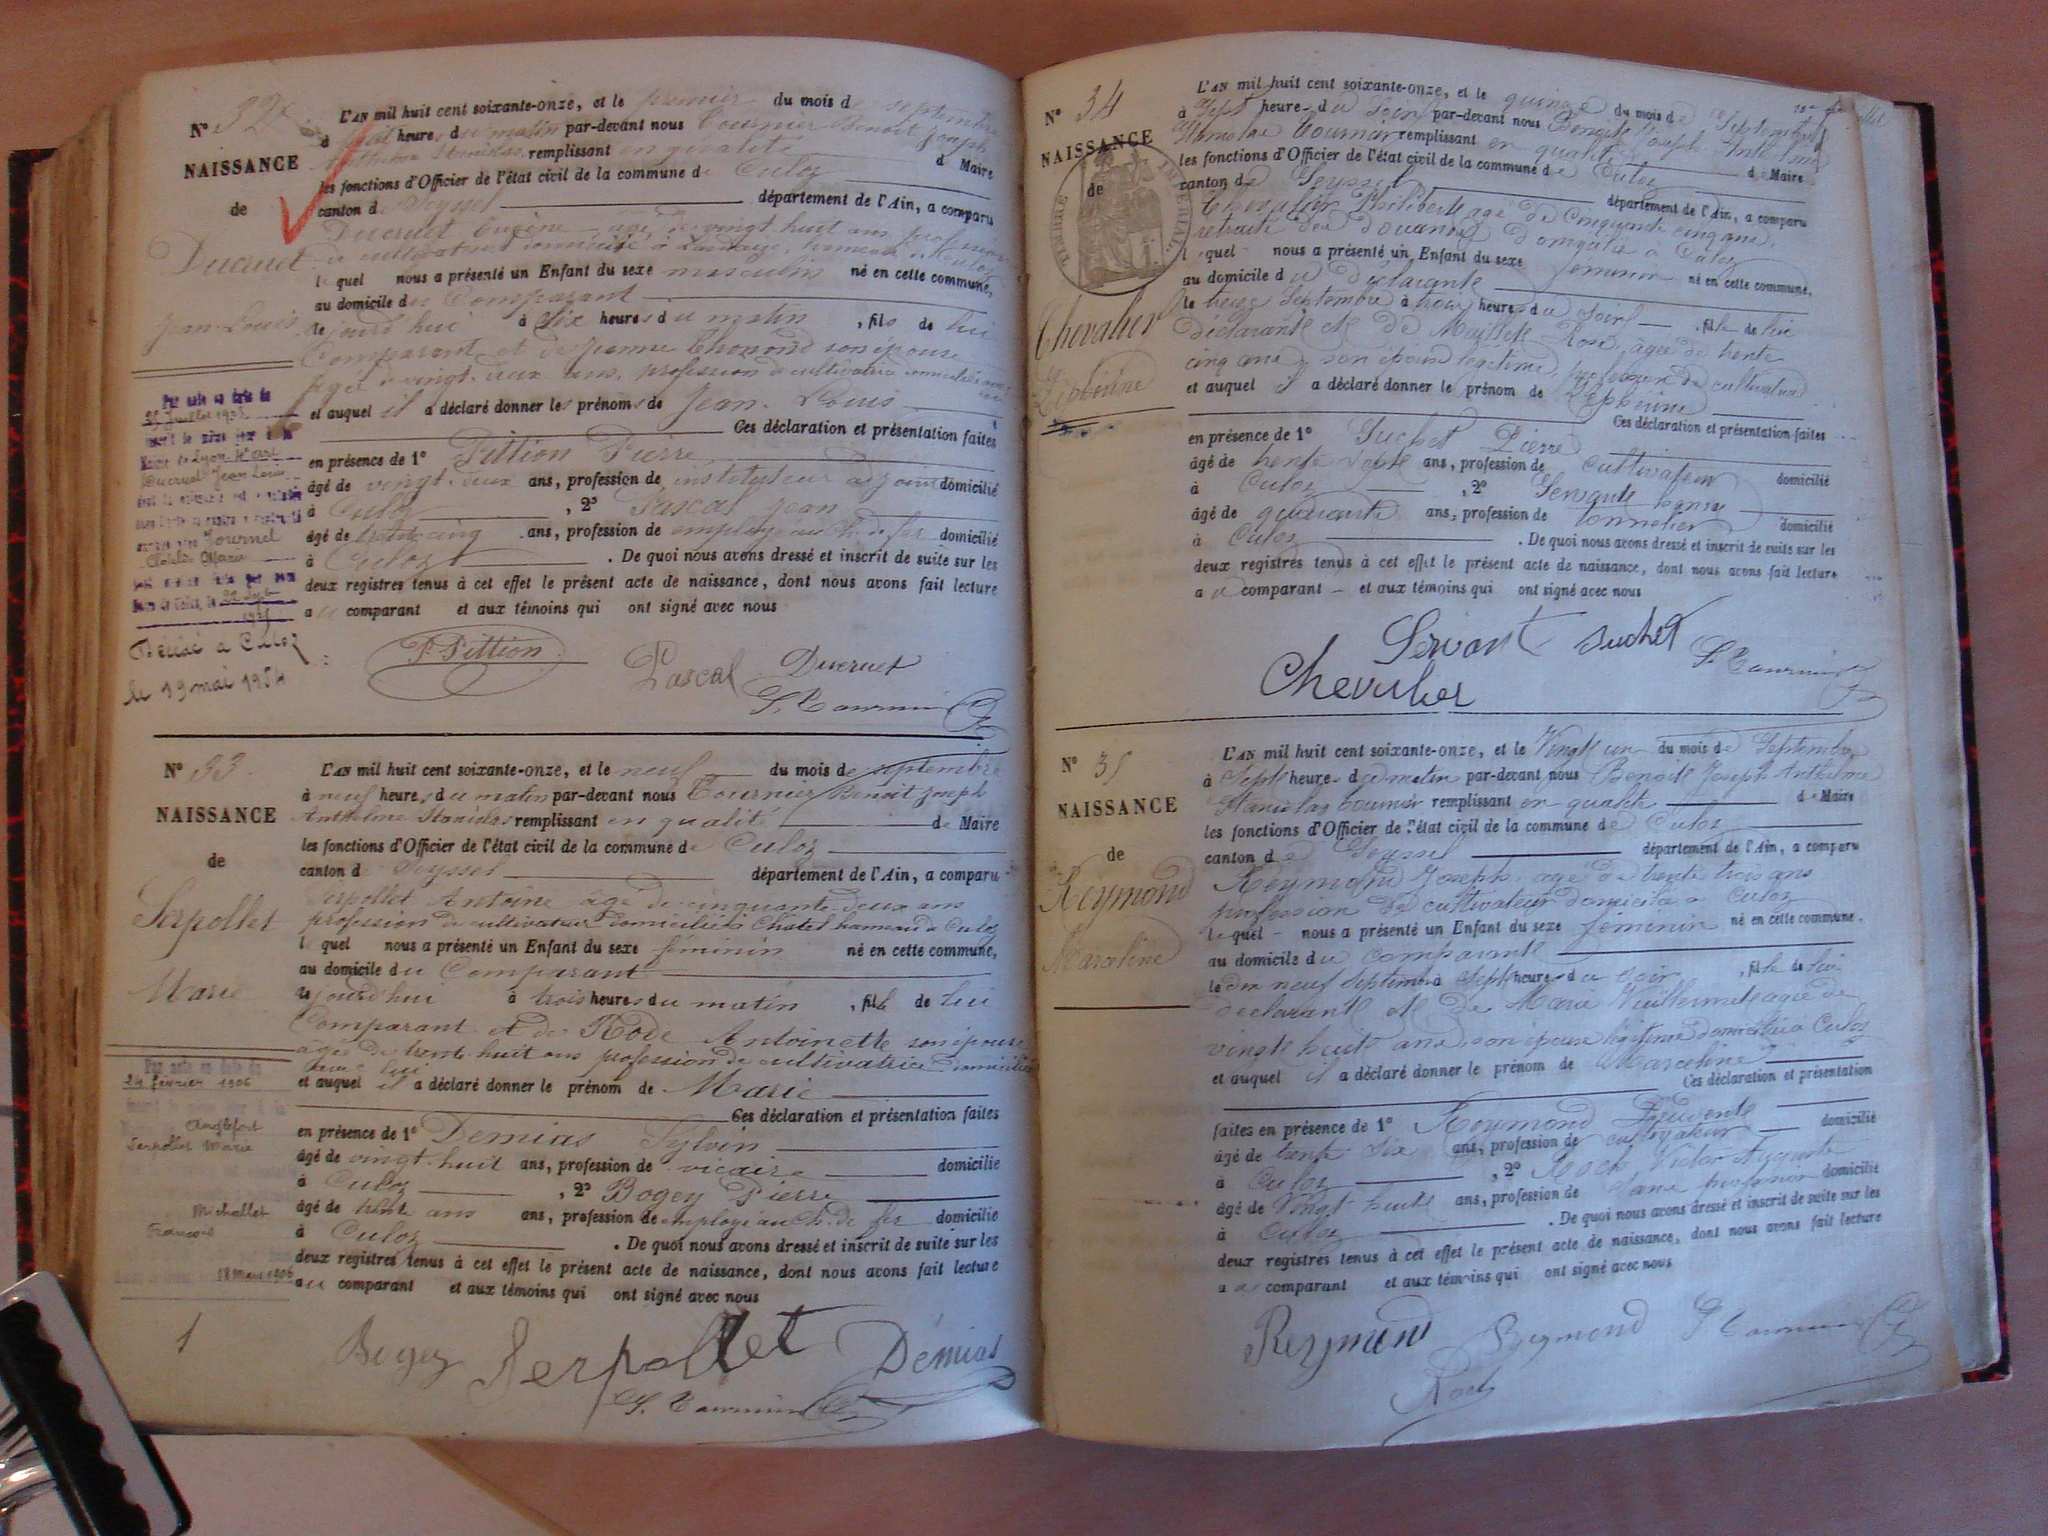 N° 32
NAISSANCE
de
Ducruet
Jean-Louis
Par acte en date du
25 Juillet 1925
Ducruet Jean Louis
Journel
Décédé à Culoz
le 19 mai 1954
L'AN mil huit cent soixante-onze, et le premier du mois de septembre
à heures du matin par-devant nous Tournier Benoit Joseph
Anthelme Stanislas remplissant en qualité de Maire
les fonctions d'Officier de l'état civil de la commune de Culoz
canton de Seyssel département de l'Ain, a comparu
Ducruet Eugène âgé de vingt huit ans profession
de cultivateur domicilié à hameau de Culoz
lequel nous a présenté un Enfant du sexe masculin né en cette commune,
au domicile du Comparant
le jourd'hui à Six heures du matin, fils de lui
Comparant et de Jeanne Thomond son épouse
âgée de vingt deux ans, profession de cultivatrice
et auquel il a déclaré donner les prénoms de Jean-Louis
Ces déclaration et présentation faites
en présence de 1° Pittion Pierre
âgé de vingt-deux ans, profession de instituteur adjoint domicilié
à Culoz, 2° Pascal Jean
âgé de trente cinq ans, profession de employé au ch. de fer domicilié
à Culoz. De quoi nous avons dressé et inscrit de suite sur les
deux registres tenus à cet effet le présent acte de naissance, dont nous avons fait lecture
au comparant et aux témoins qui ont signé avec nous
P. Pittion
Pascal Ducruet
S. Tournier
N° 33
NAISSANCE
de
Serpollet
Marie
Par acte en date du
24 février 1906
Anglefort
Serpollet Marie
Michallet
François
18 Mars 1906
1
L'AN mil huit cent soixante-onze, et le neuf du mois de septembre
à neuf heures du matin par-devant nous Tournier Benoit Joseph
Anthelme Stanislas remplissant en qualité de Maire
les fonctions d'Officier de l'état civil de la commune de Culoz
canton de Seyssel département de l'Ain, a comparu
Serpollet Antoine âgé de cinquante-deux ans
profession de cultivateur domicilié à Châtel hameau de Culoz
lequel nous a présenté un Enfant du sexe féminin né en cette commune,
au domicile du Comparant
le jourd'hui à trois heures du matin, fille de lui
Comparant et de Rode Antoinette son épouse
âgée de trente-huit ans profession de cultivatrice domiciliée
avec lui
et auquel il a déclaré donner le prénom de Marie
Ces déclaration et présentation faites
en présence de 1° Demias Sylvin
âgé de vingt-huit ans, profession de vicaire domicilié
à Culoz, 2° Bogey Pierre
âgé de trente ans ans, profession de employé au ch. de fer domicilié
à Culoz. De quoi nous avons dressé et inscrit de suite sur les
deux registres tenus à cet effet le présent acte de naissance, dont nous avons fait lecture
au comparant et aux témoins qui ont signé avec nous
Bogey Serpollet Démias
S. Tournier
N° 34
NAISSANCE
de
TIMBRE IMPERIAL
Chevalier
Zéphirine
L'AN mil huit cent soixante-onze, et le quinze du mois de Septembre
à Sept heures du Soir par-devant nous Benoit Joseph Anthelme
Stanislas Tournier remplissant en qualité de Maire
les fonctions d'Officier de l'état civil de la commune de Culoz
canton de Seyssel département de l'Ain, a comparu
Chevalier Philibert âgé de Cinquante cinq ans,
retraité des douanes domicilié à Culoz
lequel nous a présenté un Enfant du sexe féminin né en cette commune,
au domicile du déclarant
le treize Septembre à trois heures du Soir, fille de lui
déclarant et de Rose, âgée de trente
cinq ans, son épouse légitime, profession de cultivatrice
et auquel il a déclaré donner le prénom de Zéphirine
Ces déclaration et présentation faites
en présence de 1° Suchet Pierre
âgé de trente sept ans, profession de cultivateur domicilié
à Culoz, 2° Servant
âgé de quarante ans, profession de tonnelier domicilié
à Culoz. De quoi nous avons dressé et inscrit de suite sur les
deux registres tenus à cet effet le présent acte de naissance, dont nous avons fait lecture
au comparant et aux témoins qui ont signé avec nous
Servant Suchet S. Tournier
Chevalier
N° 35
NAISSANCE
de
Reymond
Marceline
L'AN mil huit cent soixante-onze, et le Vingt un du mois de Septembre
à Sept heures du matin par-devant nous Benoit Joseph Anthelme
Stanislas Tournier remplissant en qualité de Maire
les fonctions d'Officier de l'état civil de la commune de Culoz
canton de Seyssel département de l'Ain, a comparu
Reymond Joseph âgé de trente trois ans
profession de cultivateur domicilié à Culoz
lequel nous a présenté un Enfant du sexe féminin né en cette commune,
au domicile du comparant
le dix neuf Septembre à Sept heures du soir, fille de lui
déclarant et de Marie Vuillermet âgée de
vingt huit ans, son épouse légitime domiciliée à Culoz
et auquel il a déclaré donner le prénom de Marceline
Ces déclaration et présentation
faites en présence de 1° Reymond domicilié
âgé de trente Six ans, profession de cultivateur
à Culoz, 2° Roch Victor Auguste
âgé de Vingt huit ans, profession de sans profession domicilié
à Culoz. De quoi nous avons dressé et inscrit de suite sur les
deux registres tenus à cet effet le présent acte de naissance, dont nous avons fait lecture
au comparant et aux témoins qui ont signé avec nous
Reymond Reymond S. Tournier
Roch